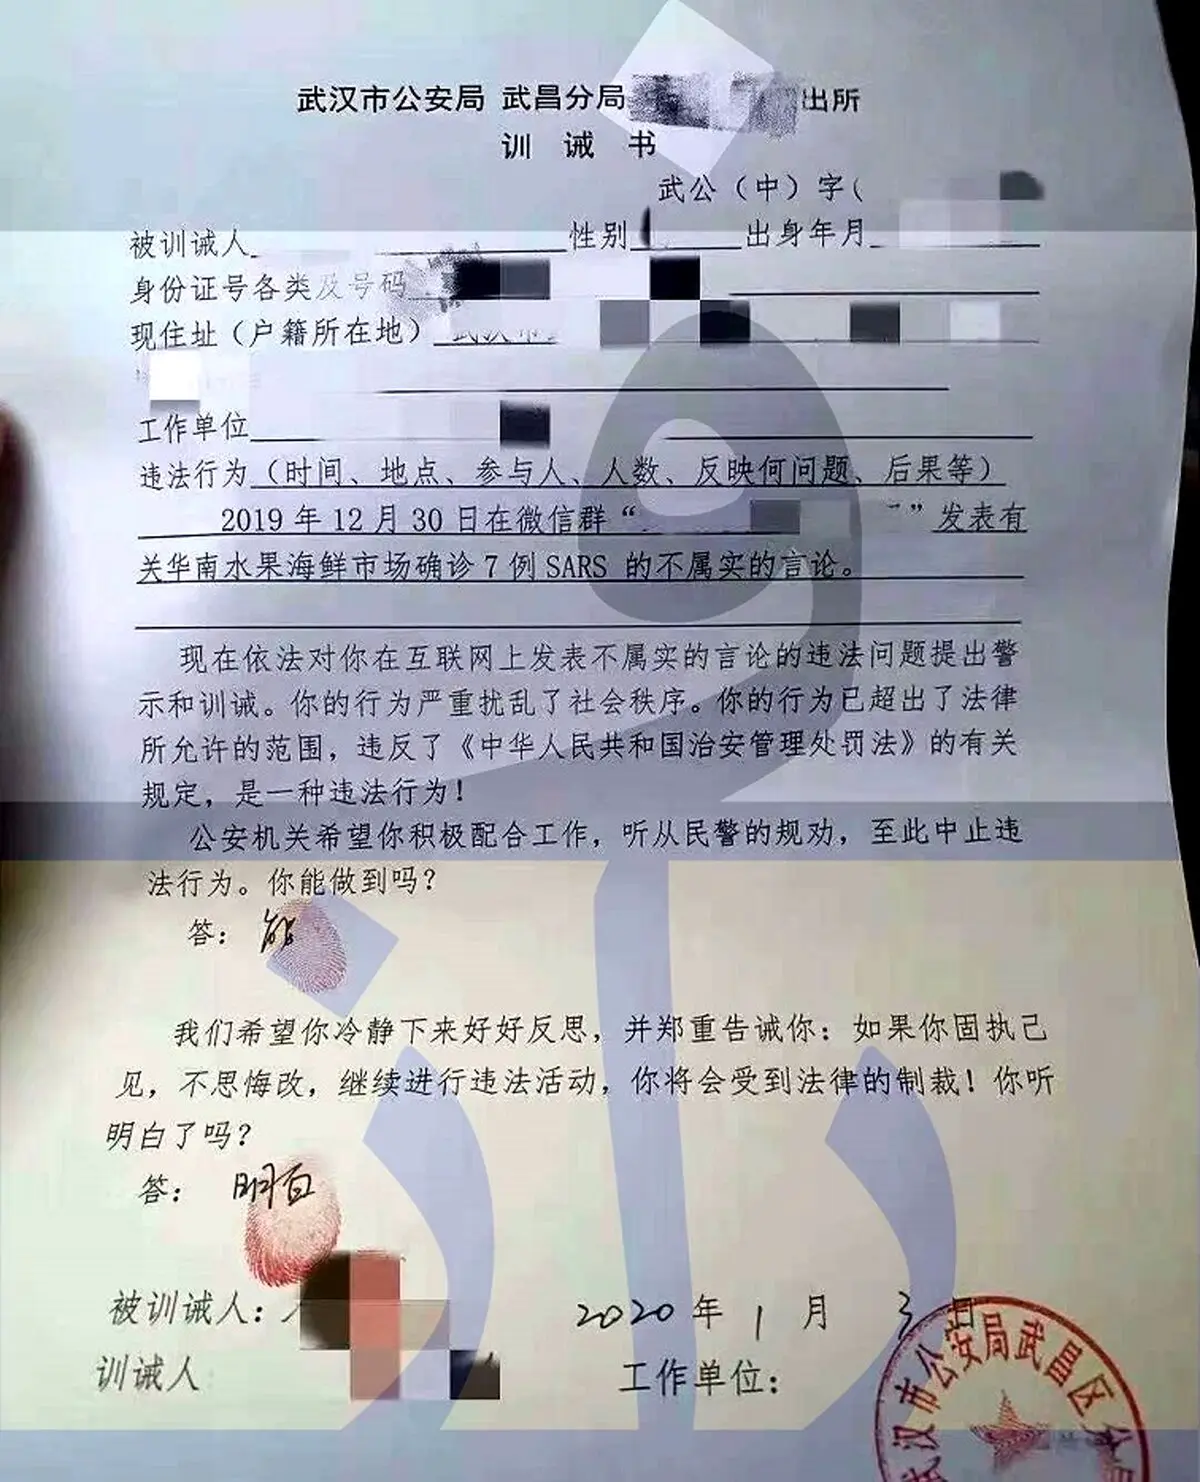 武汉市公安局 武昌分局 出所
训 诫 书
武公（中）字（
被训诫人 性别 出身年月
身份证号各类及号码
现住址（户籍所在地） 武汉市
工作单位
违法行为（时间、地点、参与人、人数、反映何问题、后果等）
2019 年 12 月 30 日在微信群“ ”发表有
关华南水果海鲜市场确诊 7 例 SARS 的不属实的言论。
现在依法对你在互联网上发表不属实的言论的违法问题提出警
示和训诫。你的行为严重扰乱了社会秩序。你的行为已超出了法律
所允许的范围，违反了《中华人民共和国治安管理处罚法》的有关
规定，是一种违法行为！
公安机关希望你积极配合工作，听从民警的规劝，至此中止违
法行为。你能做到吗？
答：能
我们希望你冷静下来好好反思，并郑重告诫你：如果你固执己
见，不思悔改，继续进行违法活动，你将会受到法律的制裁！你听
明白了吗？
答：明白
被训诫人： 2020 年 1 月 3 日
训诫人 工作单位：
武汉市公安局武昌区分局